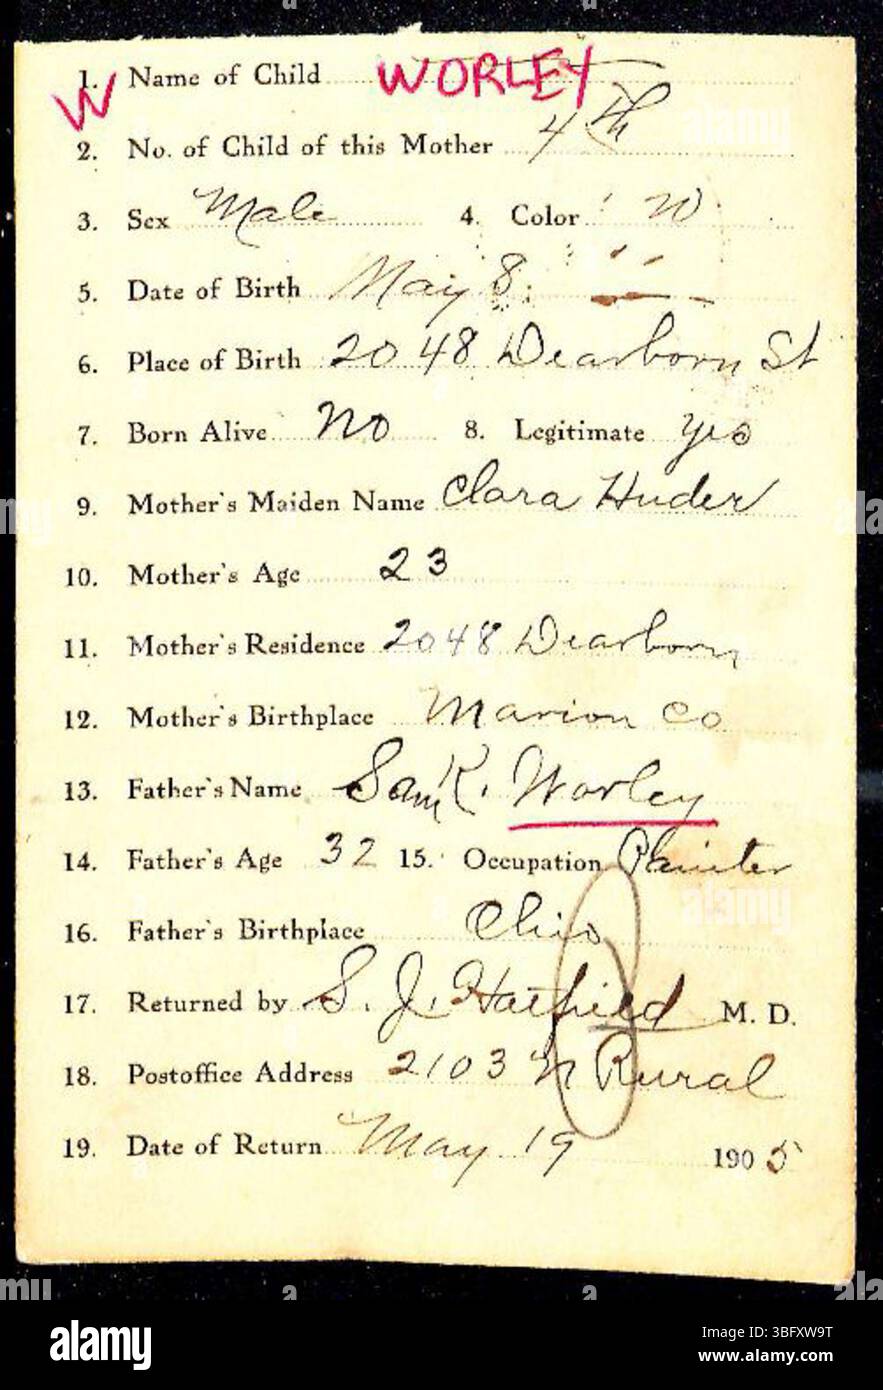 1. Name of Child WORLEY
W
2. No. of Child of this Mother 4th
3. Sex Male 4. Color W
5. Date of Birth May 8
6. Place of Birth 2048 Dearborn St
7. Born Alive No 8. Legitimate yes
9. Mother's Maiden Name Clara Huder
10. Mother's Age 23
11. Mother's Residence 2048 Dearborn
12. Mother's Birthplace Marion Co
13. Father's Name Sam K. Worley
14. Father's Age 32 15. Occupation Painter
16. Father's Birthplace Ohio
17. Returned by S. J. Hatfield M. D.
18. Postoffice Address 2103 N Rural
19. Date of Return May 19 1905
alamy
Image ID: 3BFXW9T
www.alamy.com